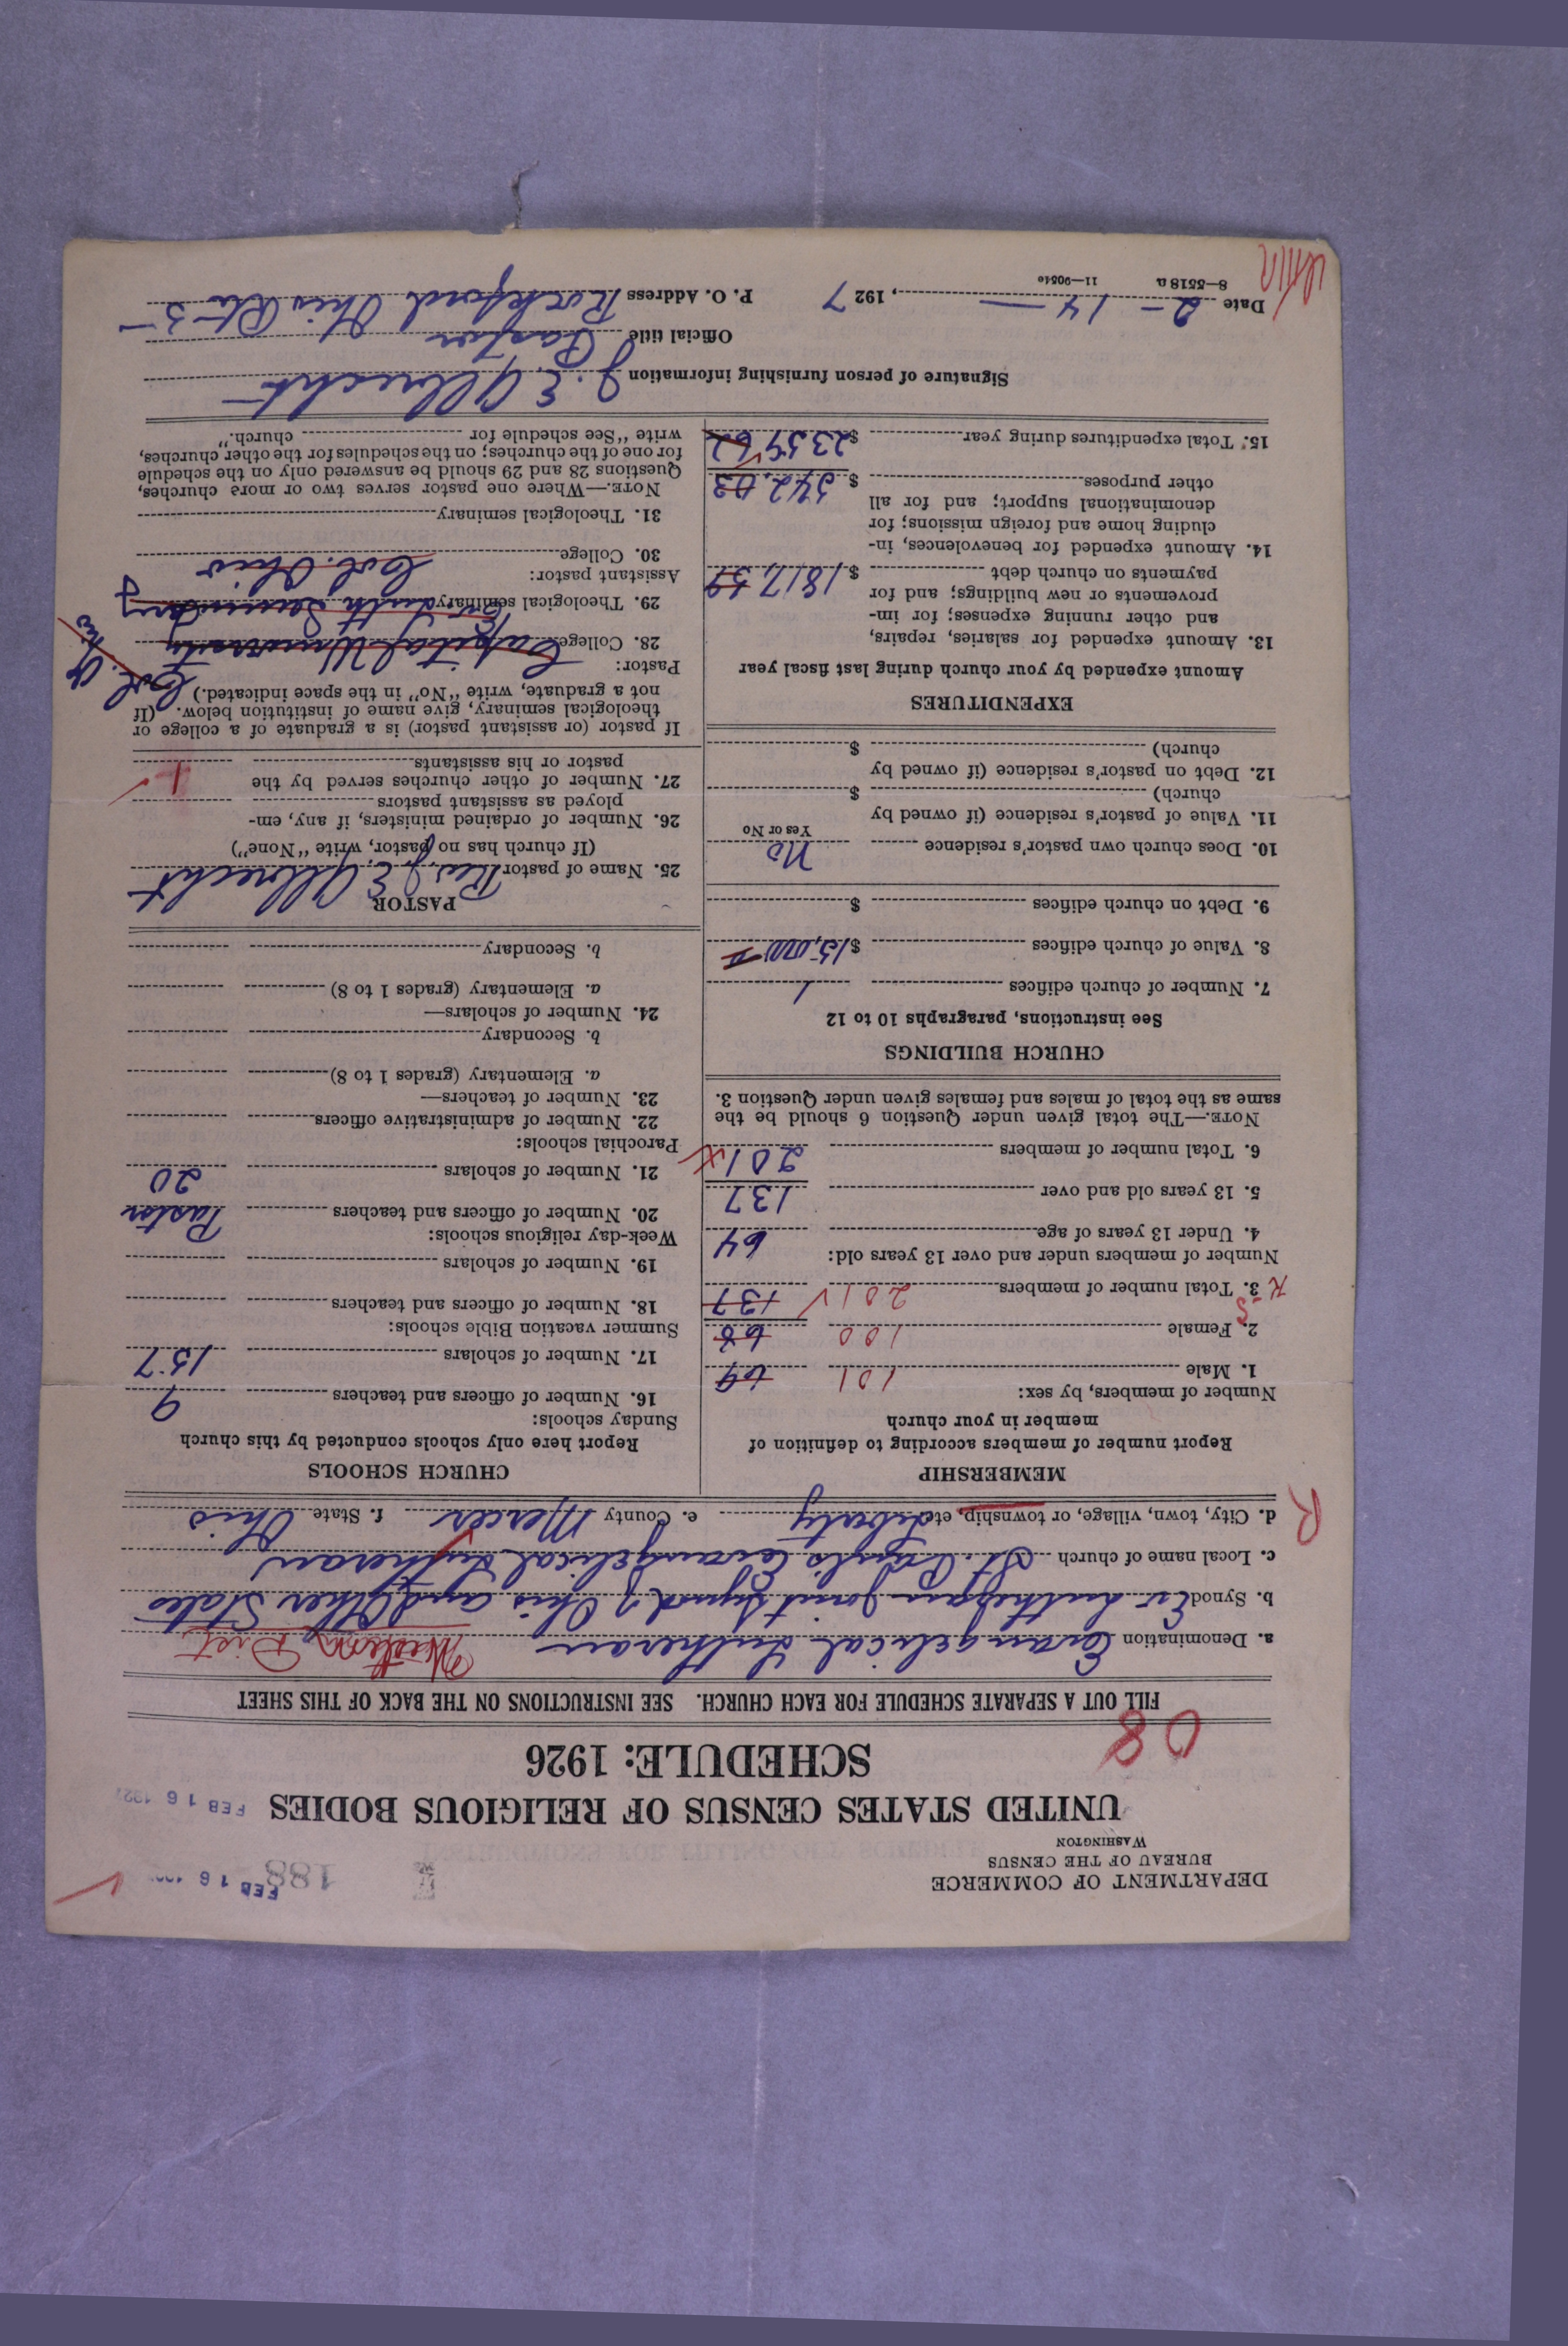 DEPARTMENT OF COMMERCE
BUREAU OF THE CENSUS
WASHINGTON
188
FEB 16
UNITED STATES CENSUS OF RELIGIOUS BODIES
FEB 16 1927
SCHEDULE: 1926
08
FILL OUT A SEPARATE SCHEDULE FOR EACH CHURCH. SEE INSTRUCTIONS ON THE BACK OF THIS SHEET
a. Denomination Evangelical Lutheran Western Dist
b. Synod Ev. Lutheran Joint Synod of Ohio and Other States
c. Local name of church St. Paul's Evangelical Lutheran
d. City, town, village, or township, etc. Liberty e. County Mercer f. State Ohio
R
MEMBERSHIP
Report number of members according to definition of
member in your church
Number of members, by sex:
1. Male 101 69
2. Female 100 68
3. Total number of members 201 137
Number of members under and over 13 years old:
4. Under 13 years of age 64
5. 13 years old and over 137
6. Total number of members 201
NOTE.—The total given under Question 6 should be the
same as the total of males and females given under Question 3.
CHURCH BUILDINGS
See instructions, paragraphs 10 to 12
7. Number of church edifices 1
8. Value of church edifices $15,000
9. Debt on church edifices $
10. Does church own pastor's residence No
Yes or No
11. Value of pastor's residence (if owned by
church) $
12. Debt on pastor's residence (if owned by
church) $
EXPENDITURES
Amount expended by your church during last fiscal year
13. Amount expended for salaries, repairs,
and other running expenses; for im-
provements or new buildings; and for
payments on church debt $1817.59
14. Amount expended for benevolences, in-
cluding home and foreign missions; for
denominational support; and for all
other purposes $542.03
15. Total expenditures during year $2359 62
CHURCH SCHOOLS
Report here only schools conducted by this church
Sunday schools:
16. Number of officers and teachers 9
17. Number of scholars 157
Summer vacation Bible schools:
18. Number of officers and teachers
19. Number of scholars
Week-day religious schools:
20. Number of officers and teachers Pastor
21. Number of scholars 20
Parochial schools:
22. Number of administrative officers
23. Number of teachers—
a. Elementary (grades 1 to 8)
b. Secondary
24. Number of scholars—
a. Elementary (grades 1 to 8)
b. Secondary
PASTOR
25. Name of pastor Rev. J. E. Albrecht
(If church has no pastor, write "None")
26. Number of ordained ministers, if any, em-
ployed as assistant pastors
27. Number of other churches served by the
pastor or his assistants 1
If pastor (or assistant pastor) is a graduate of a college or
theological seminary, give name of institution below. (If
not a graduate, write "No" in the space indicated.)
Pastor:
28. College Capital University Col. Ohio
29. Theological seminary Ev. Luth Seminary
Assistant pastor: Col. Ohio
30. College
31. Theological seminary
NOTE.—Where one pastor serves two or more churches,
Questions 28 and 29 should be answered only on the schedule
for one of the churches; on the schedules for the other churches,
write "See schedule for church."
Signature of person furnishing information J. E. Albrecht
Official title Pastor
Date 2-14, 1927 P. O. Address Rockford Ohio Rt-5
8—5518a 11—9051c